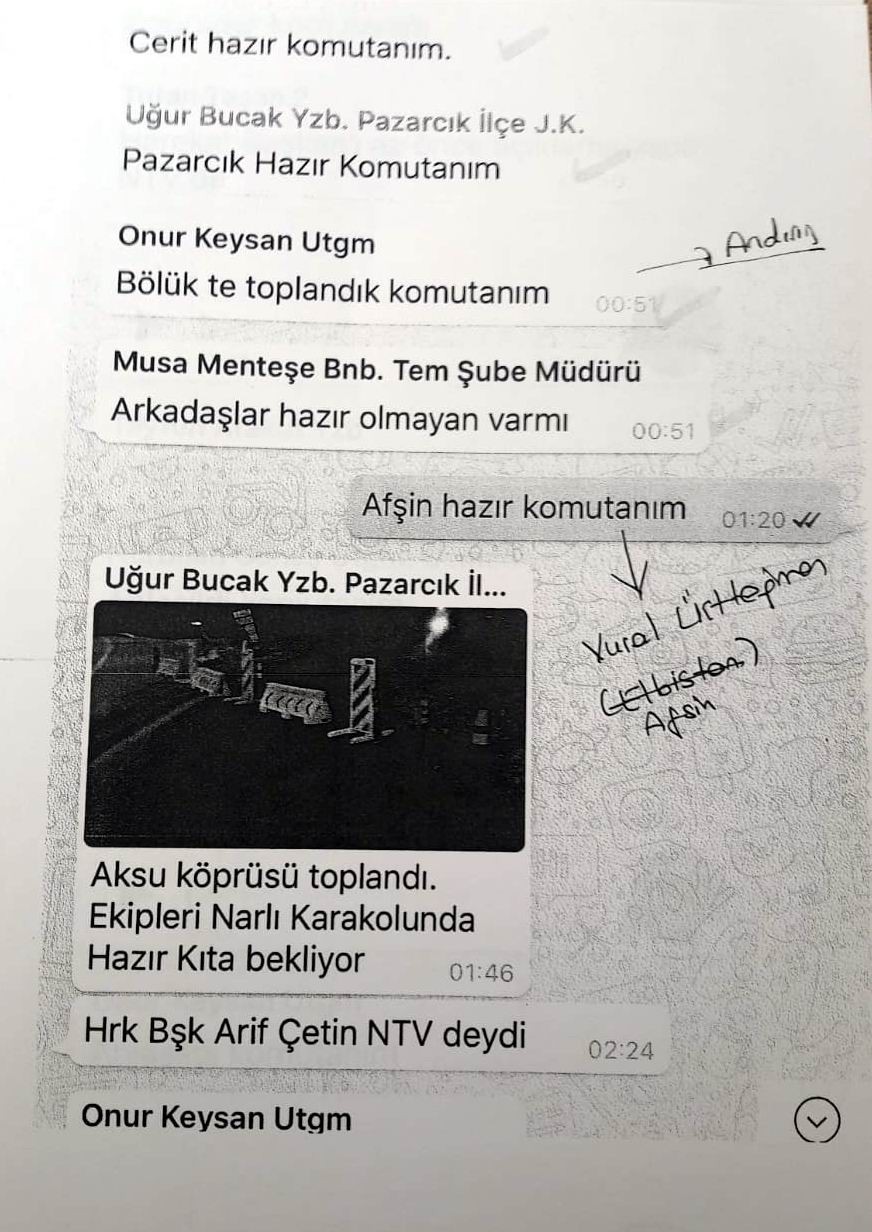 Cerit hazır komutanım.
Uğur Bucak Yzb. Pazarcık İlçe J.K.
Pazarcık Hazır Komutanım
Onur Keysan Utgm
→ Andırın
Bölük te toplandık komutanım 00:51
Musa Menteşe Bnb. Tem Şube Müdürü
Arkadaşlar hazır olmayan varmı 00:51
Afşin hazır komutanım 01:20
Uğur Bucak Yzb. Pazarcık İl...
Vural Üstteğmen
(Elbistan)
Afşin
Aksu köprüsü toplandı.
Ekipleri Narlı Karakolunda
Hazır Kıta bekliyor 01:46
Hrk Bşk Arif Çetin NTV deydi 02:24
Onur Keysan Utgm